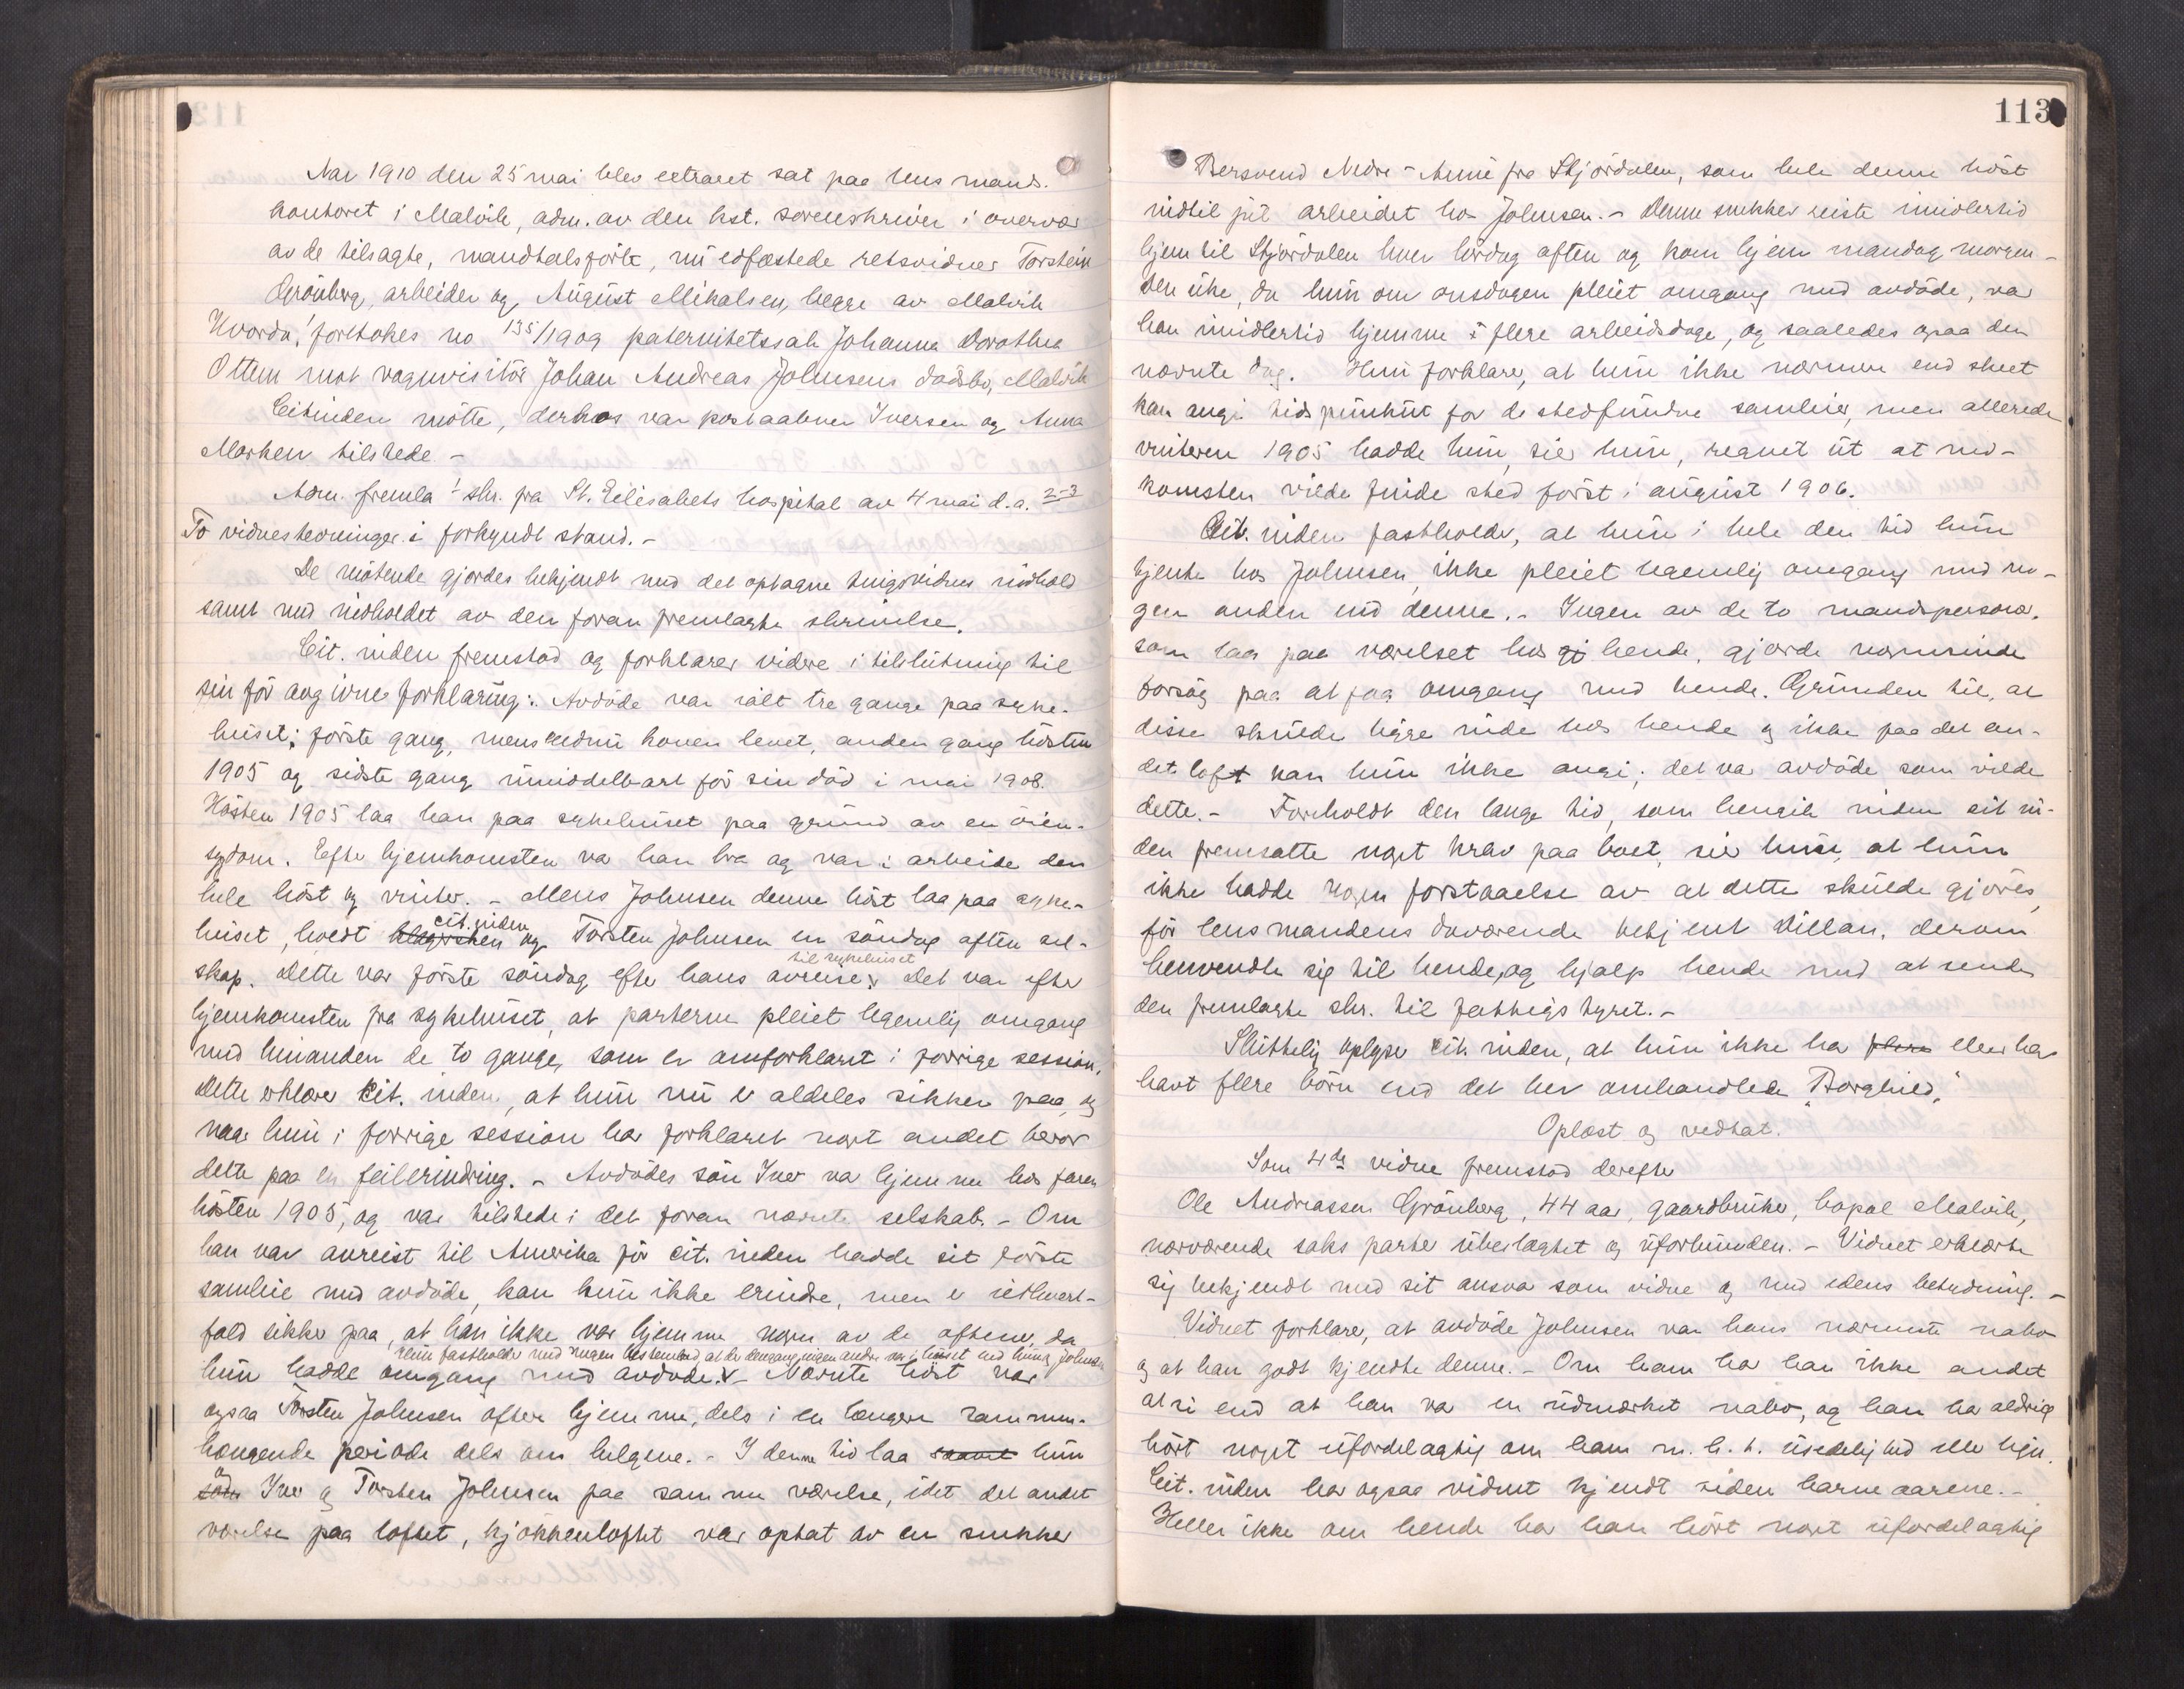 Aar 1910 den 25 mai blev extraret sat paa lensmands-
kontoret i Malvik, adm. av den kst. sorenskriver i overvær
av de tilsagte, mandtalsførte, nu edfæstede retsvidner Torstein
Grønberg, arbeider og August Mikalsen, begge av Malvik
Hvorda: foretokes no 135/1909 paternitetssak Johanna Dorothea
Ottem mot vognvisitør Johan Andreas Johnsens dødsbo, Malvik
Citinden møtte, derhos var postaabner Iversen og Anna
Marken tilstede -
Adm. fremla 1 skr. fra St. Elisabets hospital av 4 mai d.a. 2-3
To vidnestevninger i forkyndt stand. -
De møtende gjordes bekjendt med det optagne tingsvidnes indhold
samt med indholdet av den foran fremlagte skrivelse.
Cit. inden fremstod og forklarer videre i tilslutning til
sin før avgivne forklaring: Avdøde var ialt tre gange paa syke-
huset; første gang, mens endnu konen levet, anden gang høsten
1905 og sidste gang umiddelbart før sin død i mai 1908.
Høsten 1905 laa han paa sykehuset paa grund av en øien-
sygdom. Efter hjemkomsten va han bra og var i arbeide den
hele høst og vinter. - Mens Johnsen denne høst laa paa syke-
huset, holdt klagersken cit. inden og Torsten Johnsen en søndag aften sel-
skap. Dette var første søndag efter hans avreise til sykehuset. Det var efter
hjemkomsten fra sykehuset, at parterne pleiet legemlig omgang
med hinanden de to gange, som er omforklaret i forrige session.
Dette erklærer cit. inden, at hun nu er aldeles sikker paa, og
naar hun i forrige session har forklaret noget andet beror
dette paa en feilerindring. - Avdødes søn Iver va hjemme hos faren
høsten 1905, og var tilstede i det foran nævnte selskab. - Om
han var avreist til Amerika før cit. inden hadde sit første
samleie med avdøde, kan hun ikke erindre, men er iethvert-
fald sikker paa, at han ikke var hjemme nogen av de aftener, da
hun hadde omgang med avdøde. Hun fastholder med megen bestemthed at der dengang ingen andre var i huset end hun og Johnsen - Nævnte høst var
ogsaa Torsten Johnsen ofte hjemme, dels i en længere sammen-
hængende periode dels om helgene. - I denne tid laa saavel hun
som og Iver og Torsten Johnsen paa samme værelse, idet det andet
værelse paa loftet, kjøkkenloftet var optat av en snekker
113
Bersvend Nedre-Aune fra Stjørdalen, som hele denne høst
indtil jul arbeidet hos Johnsen. - Denne snekker reiste imidlertid
hjem til Stjørdalen hver lørdag aften og kom hjem mandag morgen -
Den uke, da hun om onsdagen pleiet omgang med avdøde, var
han imidlertid hjemme i flere arbeidsdage, og saaledes ogsaa den
nævnte dag. Hun forklarer, at hun ikke nærmere end skeet
kan angi tidspunktet for de stedfundne samleier, men allerede
vinteren 1905 hadde hun, sier hun, regnet ut at ned-
komsten vilde finde sted først i august 1906.
Cit. inden fastholder, at hun i hele den tid hun
tjente hos Johnsen, ikke pleiet legemlig omgang med no-
gen anden end denne. - Ingen av de to mandspersoner,
som laa paa værelset hos hende, gjorde nogensinde
forsøg paa at faa omgang med hende. Grunden til, at
disse skulde ligge inde hos hende og ikke paa det an-
det loft kan hun ikke angi; det var avdøde som vilde
dette. - Foreholdt den lange tid, som hengik inden cit. in-
den fremsatte noget krav paa boet, sier hun, at hun
ikke hadde nogen forstaaelse av at dette skulde gjøres,
før lensmandens daværende betjent Villan, derom
henvendte sig til hende, og hjalp hende med at sende
den fremlagte skr. til fattigstyret. -
Sluttelig oplyser cit. inden, at hun ikke har flere eller har
havt flere børn end det her omhandlede "Borghild".
Oplæst og vedtat.
Som 4de vidne fremstod derefter
Ole Andreassen Grønberg, 44 aar, gaardbruker, bopæl Malvik,
nærværende saks parter ubeslægtet og uforbunden. - Vidnet erklærte
sig bekjendt med sit ansvar som vidne og med edens betydning. -
Vidnet forklarer, at avdøde Johnsen var hans nærmeste nabo
og at han godt kjendte denne. - Om ham har han ikke andet
at si end at han va en udmærket nabo, og han har aldrig
hørt noget ufordelagtig om ham m.h.t. usedelighed eller lign.
Cit. inden har ogsaa vidnet kjendt siden barneaarene. -
Heller ikke om hende har han hørt noget ufordelagtig